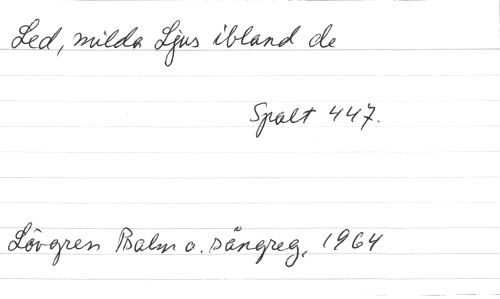 Led, milda Ljus ibland de
Spalt 447.
Lövgren Psalm o. sångreg, 1964